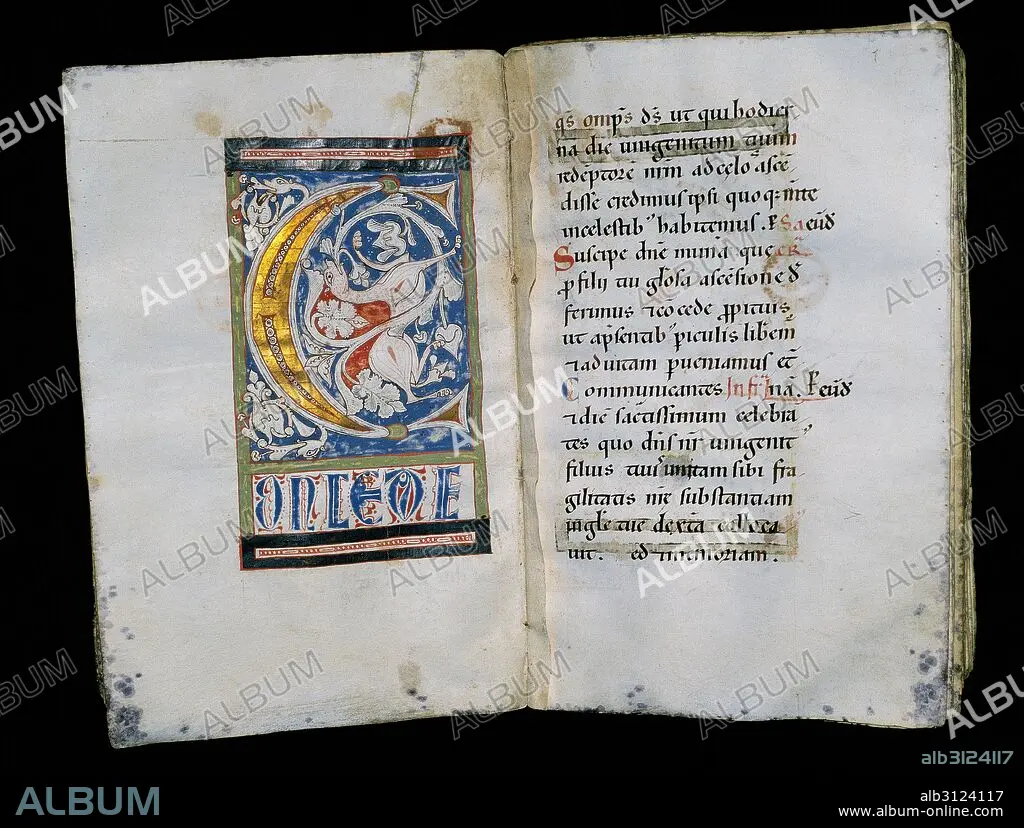 C
ONCEDE
qs omp̄s d̄s ut qui hodier
na die unigenitum tuum
redēptorē nr̄m ad celos asce
disse credimus ipsi quoq; m̄te
in celestib' habitemus. P. Sacr̄
Suscipe dn̄e munā que
p filii tui glosa ascēsione d
ferimus et cōcede propitius
ut a pr̄sentib' periculis liberem
et ad vitam perveniamus et
Communicantes Infr̄
et diē sacratissimum celebrā
tes quo dn̄s nr̄ unigenit'
filius tuus unitam sibi fra
gilitatis nr̄e substantiam
in gle tue dext̄a colloca
vit. Sed et memoriam.
ALBUM
alb3124117
ALBUM
alb3124117
www.album-online.com